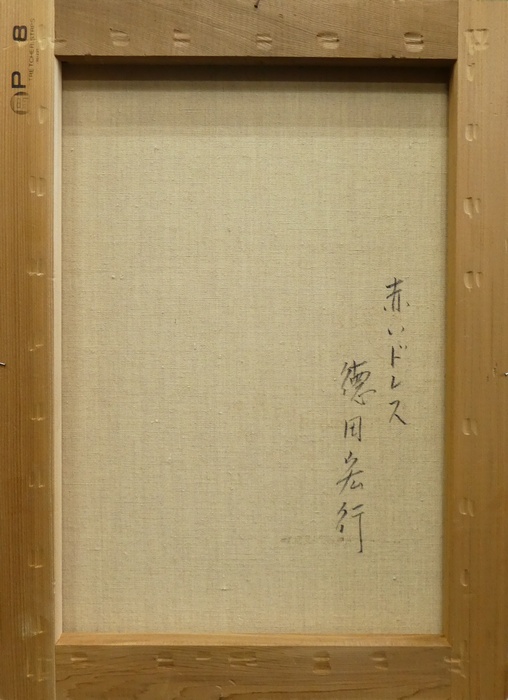 赤いドレス
德田宏行
P 8
STRETCHER STRIPS